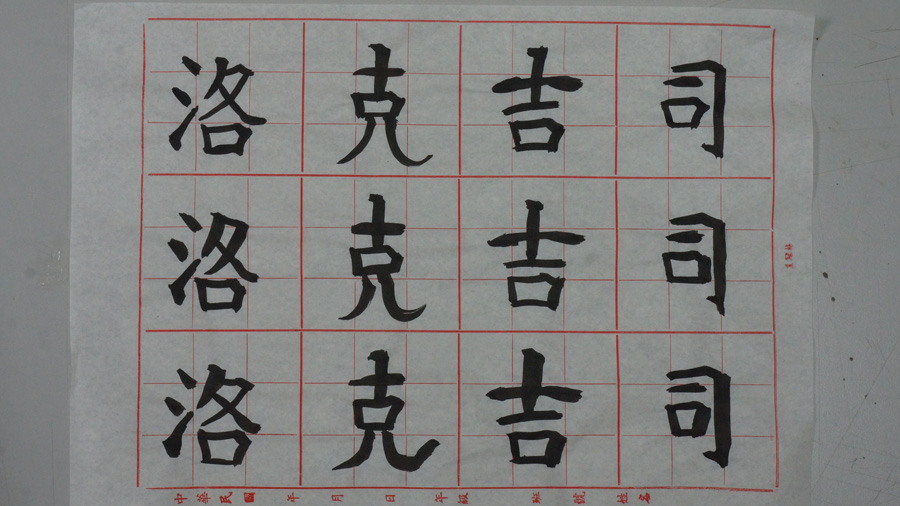 洛克吉司
洛克吉司
洛克吉司
中華民國 年 月 日 年級 班 號 姓名